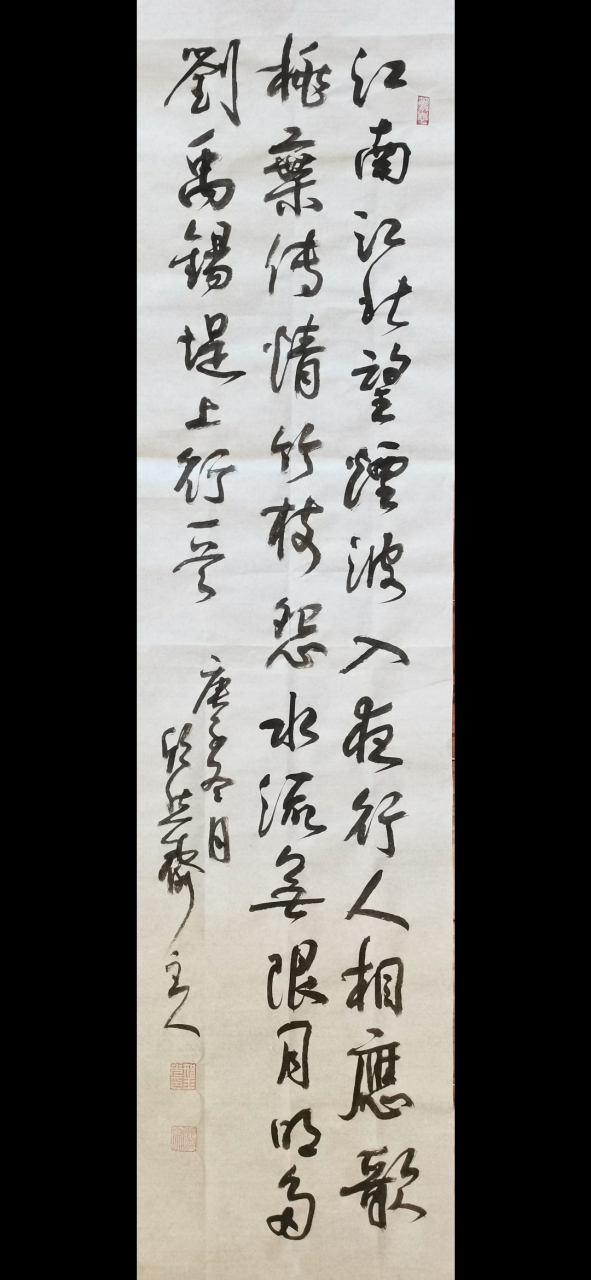 江南江北望煙波入夜行人相應歌
桃葉傳情竹枝怨水流無限月明多
劉禹錫堤上行一首
庚子冬月
欣然齋主人